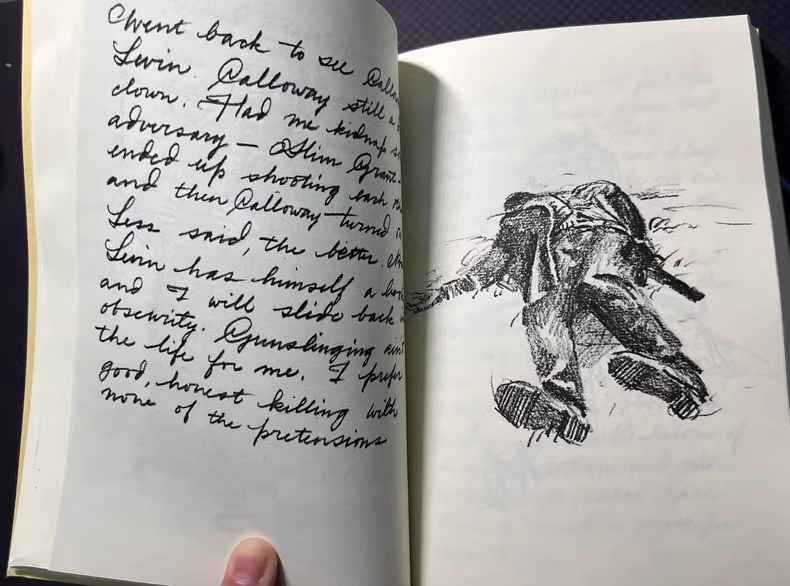 I went back to see
Levin. Calloway still a
clown. Had me kidnap
adversary – Slim Grant –
ended up shooting each
and then Calloway turned
Less said, the better.
Levin has himself a
and I will slide back
obscurity. Gunslinging ain't
the life for me. I prefer
good, honest killing with
none of the pretensions